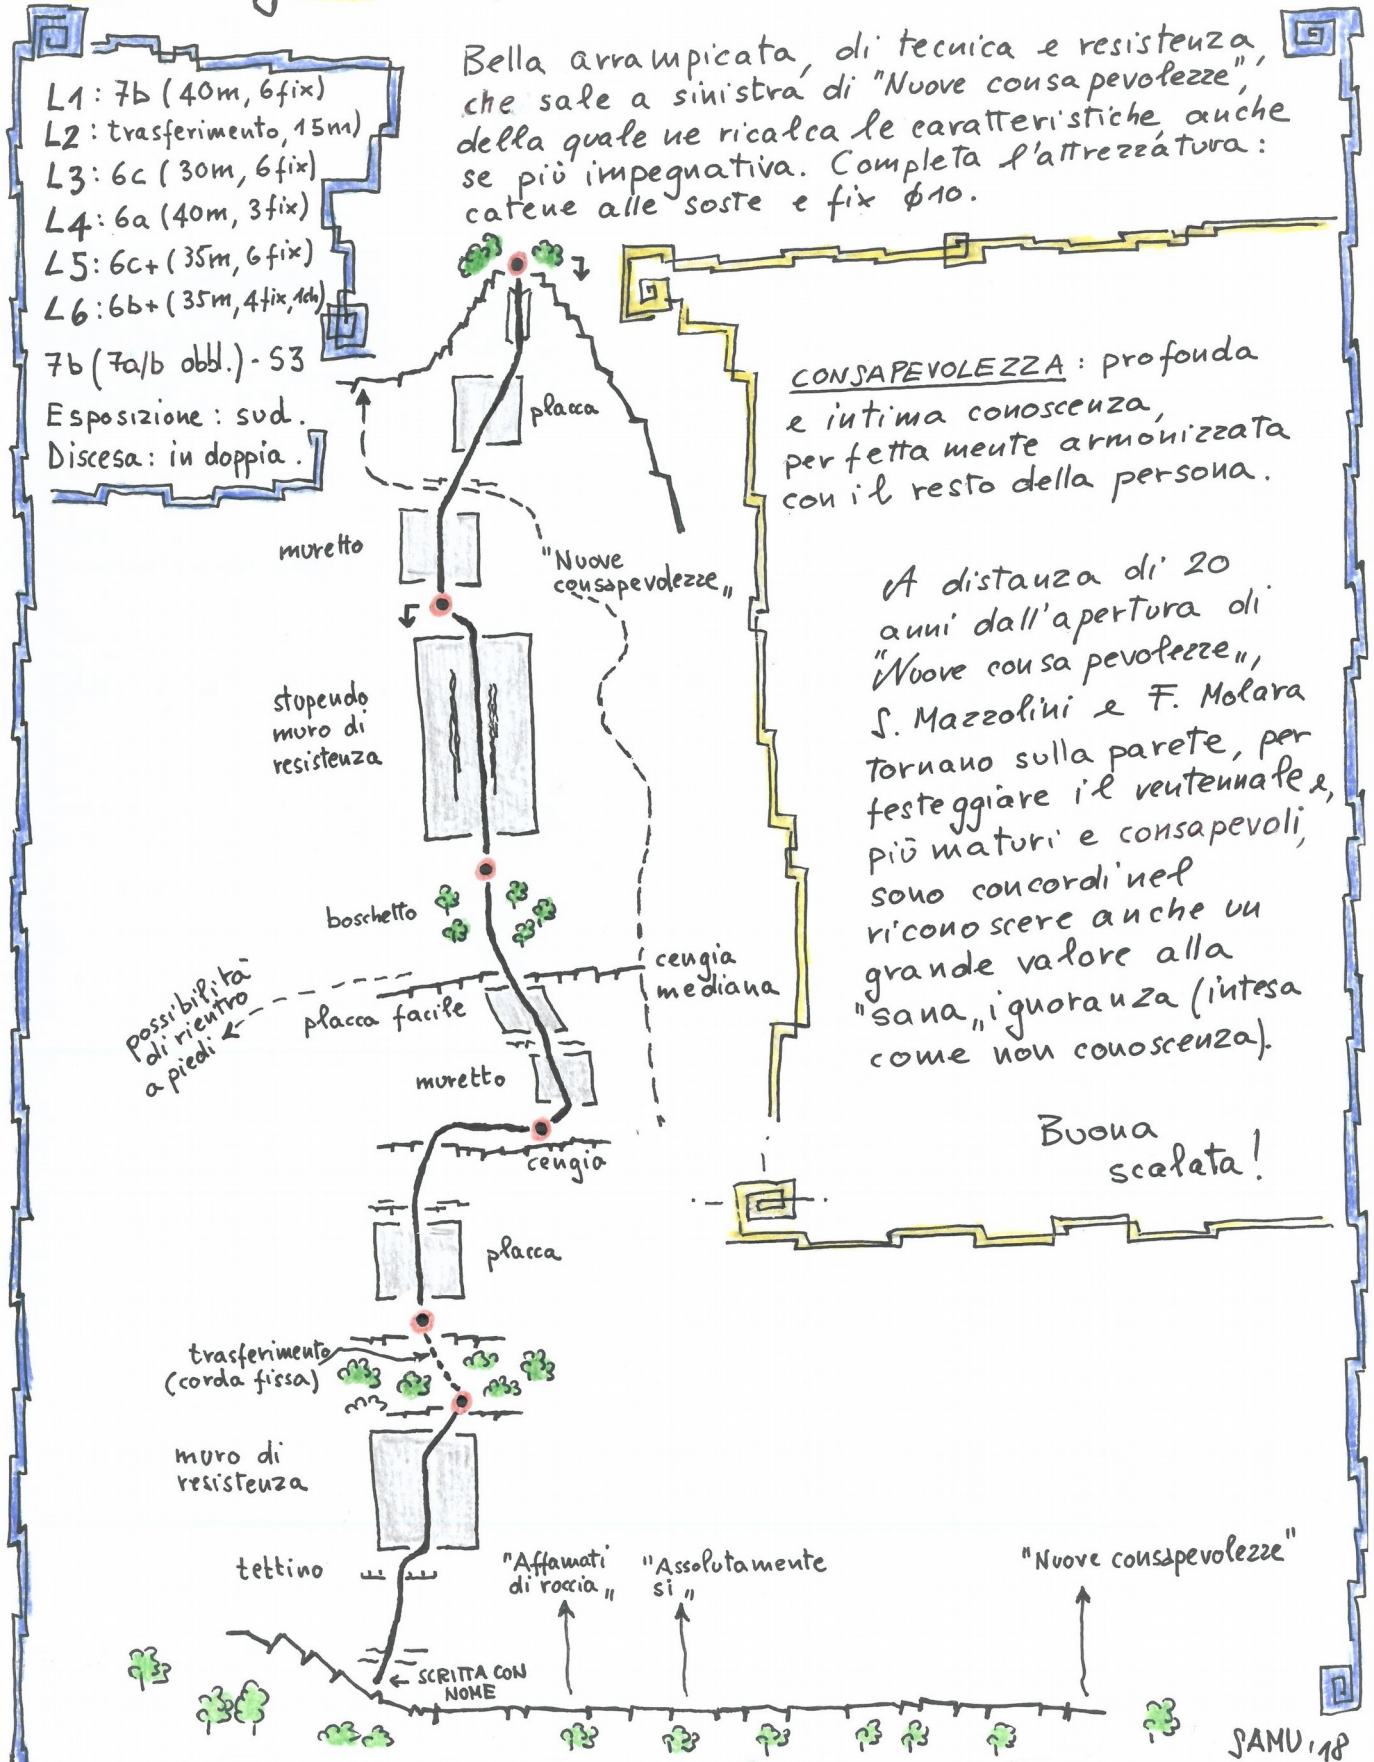 L1: 7b (40m, 6fix)
L2: trasferimento, 15m)
L3: 6c (30m, 6fix)
L4: 6a (40m, 3fix)
L5: 6c+ (35m, 6fix)
L6: 6b+ (35m, 4fix, 1ch)
7b (7a/b obbl.) - S3
Esposizione: sud.
Discesa: in doppia.
Bella arrampicata, di tecnica e resistenza,
che sale a sinistra di "Nuove consapevolezze",
della quale ne ricalca le caratteristiche, anche
se più impegnativa. Completa l'attrezzatura:
catene alle soste e fix ϕ10.
CONSAPEVOLEZZA: profonda
e intima conoscenza,
perfettamente armonizzata
con il resto della persona.
A distanza di 20
anni dall'apertura di
"Nuove consapevolezze",
S. Mazzolini e F. Molara
tornano sulla parete, per
festeggiare il ventennale e,
più maturi e consapevoli,
sono concordi nel
riconoscere anche un
grande valore alla
"sana" ignoranza (intesa
come non conoscenza).
Buona
scalata!
placca
muretto
"Nuove
consapevolezze"
stupendo
muro di
resistenza
boschetto
cengia
mediana
possibilità
di rientro
a piedi
placca facile
muretto
cengia
placca
trasferimento
(corda fissa)
muro di
resistenza
tettino
"Affamati
di roccia"
"Assolutamente
si"
"Nuove consapevolezze"
SCRITTA CON
NOME
SAMU '18